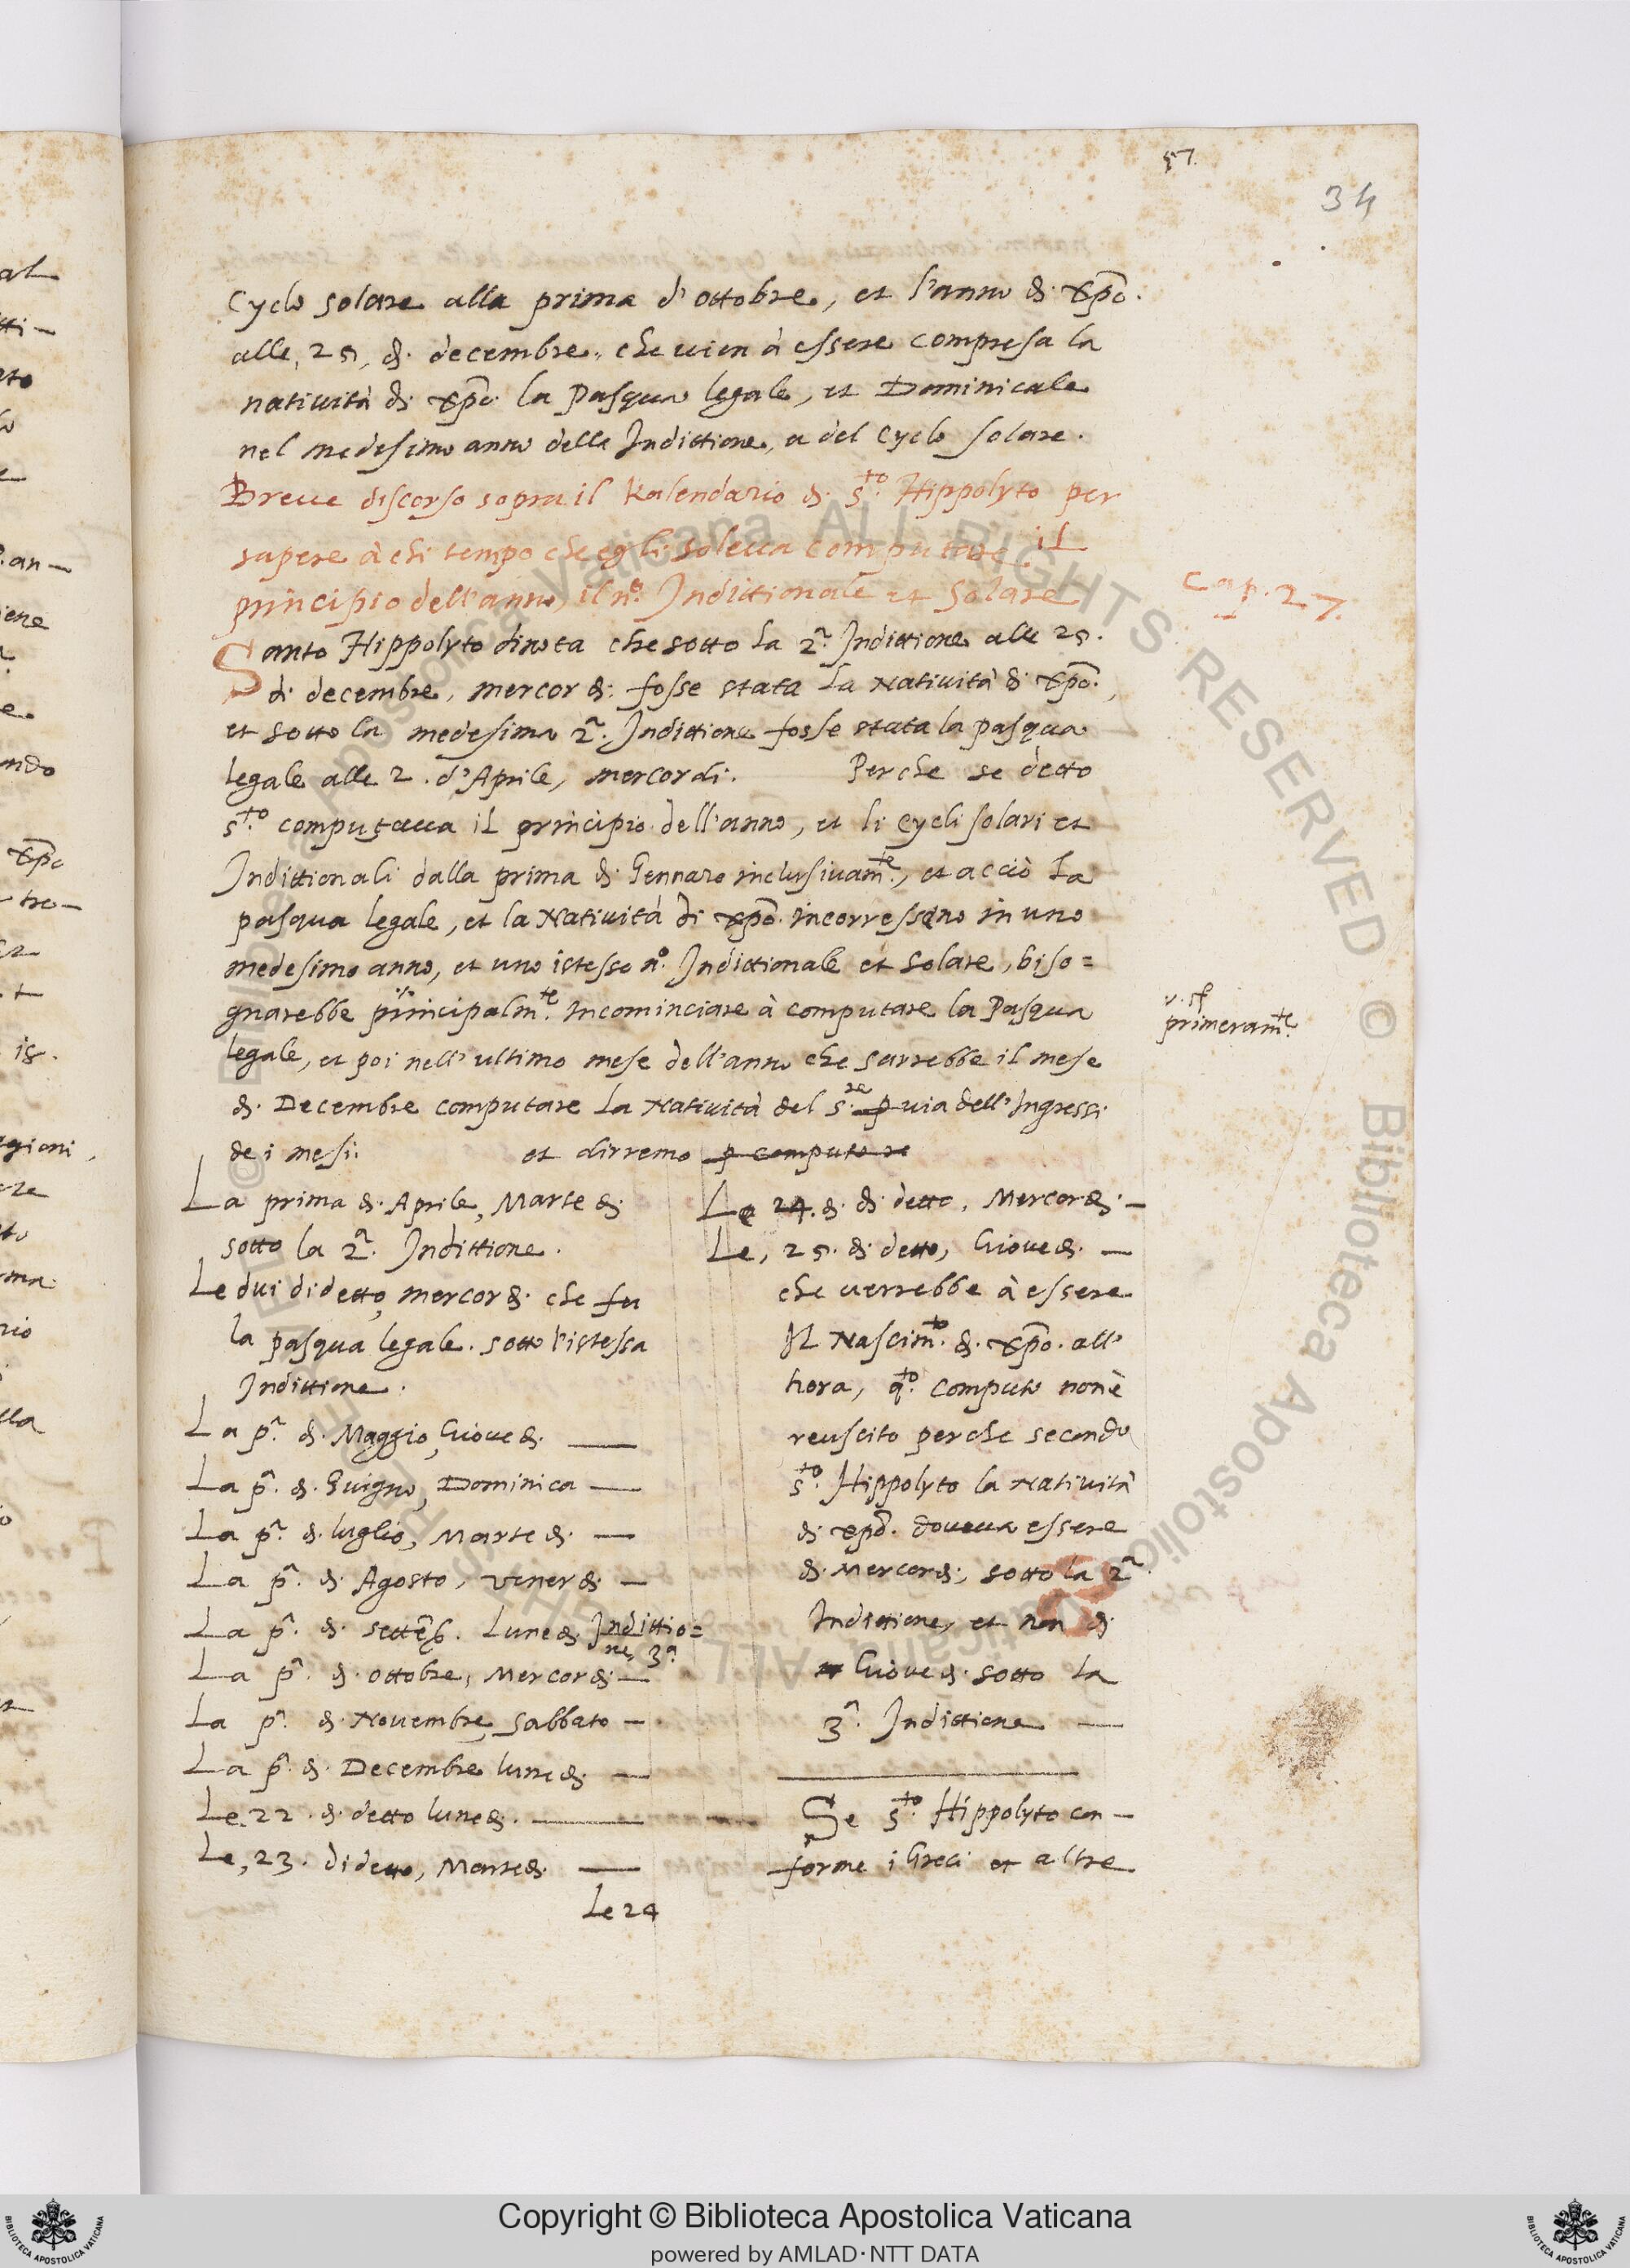 57.
34
Cyclo solare alla prima d'ottobre, et l'anno di xpo.
alle, 25, di decembre, che vien à essere compresa la
natività di xpo. la Pasqua legale, et Dominicale
nel medesimo anno delle Indittione, e del Cyclo solare.
Breve discorso sopra il Kalendario di s.to Hippolyto per
sapere à chi tempo che egli soleva computare il
principio dell'anno, il n.o Indittionale et Solare
Cap. 27.
Santo Hippolyto dinota che sotto la 2.a Indittione alle 25.
di decembre, mercordi. fosse stata la Natività di xpo.,
et sotto la medesima 2.a Indittione fosse stata la pasqua
legale alle 2. d'Aprile, mercordi. Perche se detto
s.to computava il principio dell'anno, et li cycli solari et
Indittionali dalla prima di Gennaro inclusivam.te, et acciò la
pasqua legale, et la Natività di xpo. incorressino in uno
medesimo anno, et uno istesso n.o Indittionale et solare, biso=
gnarebbe principalm.te incominciare à computare la Pasqua
primeram.te
legale, et poi nell'ultimo mese dell'anno che sarrebbe il mese
di Decembre computare la Natività del s.re p via dell'Ingressi
de i mesi. et dirremo p computare
La prima di Aprile, Martedi
sotto la 2.a Indittione.
Le dui di detto, mercordi. che fu
la pasqua legale. sotto l'istessa
Indittione.
La p.a di Maggio, Giovedi. —
La p.a di Guigno, Dominica —
La p.a di luglio, Martedi. —
La p.a di Agosto, venerdi. —
La p.a di settēb. Lunedi. Indittio=
ne, 3.a
La p.a di ottobre, Mercordi. —
La p.a di Novembre, sabbato —
La p.a di Decembre lunedi. —
Le. 22. di detto lunedi. —
Le, 23. di detto, Martedi. —
Le 24
Le 24. di detto, Mercordi. —
Le, 25. di detto, Giovedi. —
che verrebbe à essere
Il Nascim.to di xpo. all'
hora, q.to computo non è
reuscito perche secondo
s.to Hippolyto la Natività
di xpo. doveva essere
di Mercordi, sotto la 2.a
Indittione, et non di
Giovedi. sotto la
3.a Indittione —
Se s.to Hippolyto con—
forme i Greci et altre
Copyright © Biblioteca Apostolica Vaticana
powered by AMLAD·NTT DATA